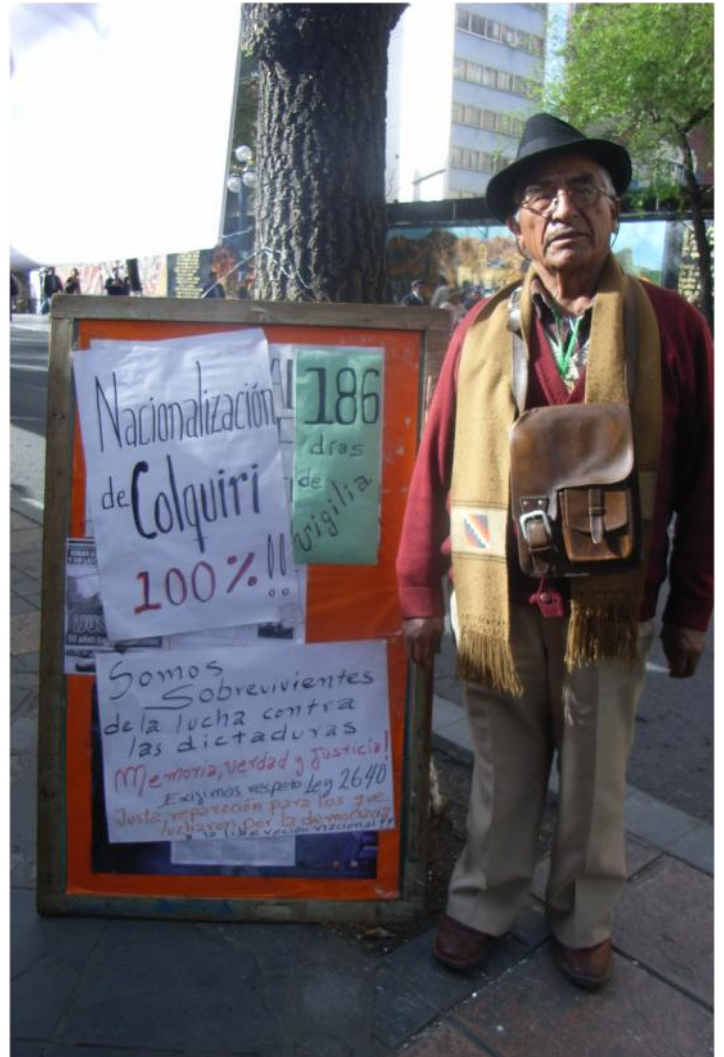 Nacionalización
de Colquiri
100%!!
186
días
de
vigilia
Somos
Sobrevivientes
de la lucha contra
las dictaduras
Memoria, verdad y Justicia!
Exigimos respeto Ley 2640
Justa, reparación para los que
lucharon por la democracia
y la liberación nacional!!